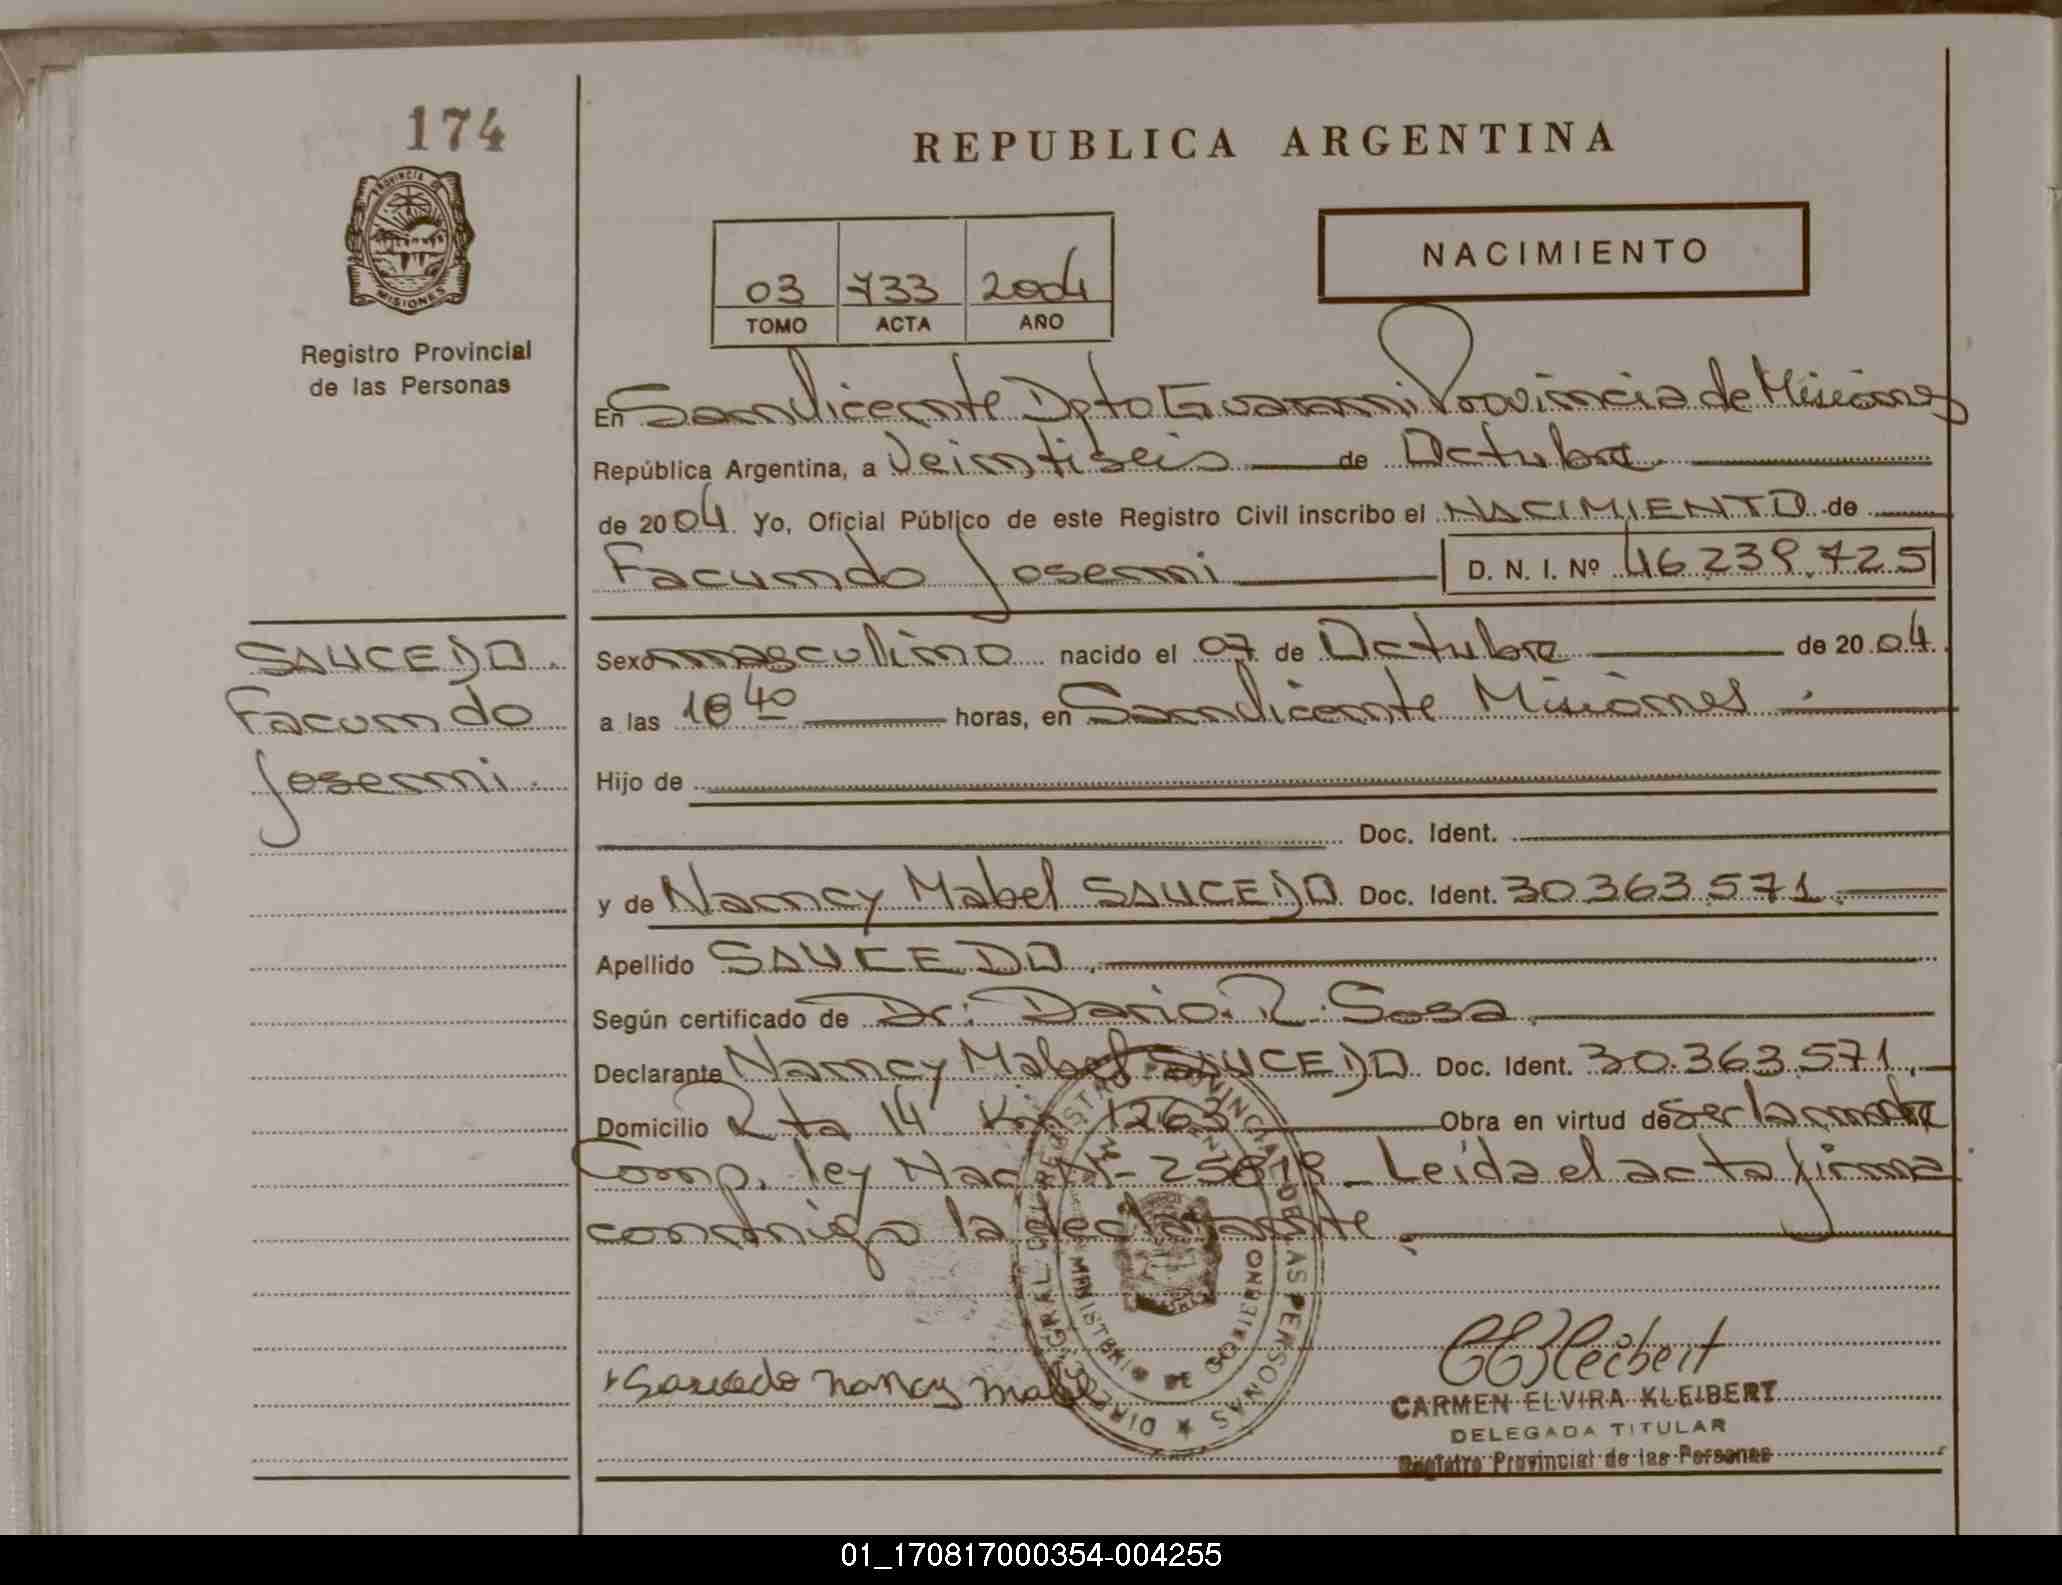 174
REPUBLICA ARGENTINA
PROVINCIA DE
MISIONES
Registro Provincial
de las Personas
03 733 2004
TOMO ACTA AÑO
NACIMIENTO
En San Vicente Dpto Guarani Provincia de Misiones
República Argentina, a Veintiseis de Octubre
de 2004 Yo, Oficial Público de este Registro Civil inscribo el NACIMIENTO de
Facundo Josenmi D. N. I. Nº 46.239.725
SAUCEDO
Facundo
Josenmi.
Sexo masculino nacido el 07 de Octubre de 2004.
a las 40 horas, en San Vicente Misiones
Hijo de
Doc. Ident.
y de Nancy Mabel SAUCEDO Doc. Ident. 30.363.571.
Apellido SAUCEDO.
Según certificado de Dr. Dario. R. Sosa.
Declarante Nancy Mabel SAUCEDO Doc. Ident. 30.363.571.
Domicilio Rta 14 Km 1263 Obra en virtud de ser la madre
Comp. ley Nac Nº 25819 - Leida el acta firma
conmigo la declarante.
DIRECC. GRAL. DEL REGISTRO PROVINCIAL DE LAS PERSONAS
MINISTERIO DE GOBIERNO
Saucedo nancy mabel
CEKleibert
CARMEN ELVIRA KLEIBERT
DELEGADA TITULAR
Registro Provincial de las Personas
01_170817000354-004255